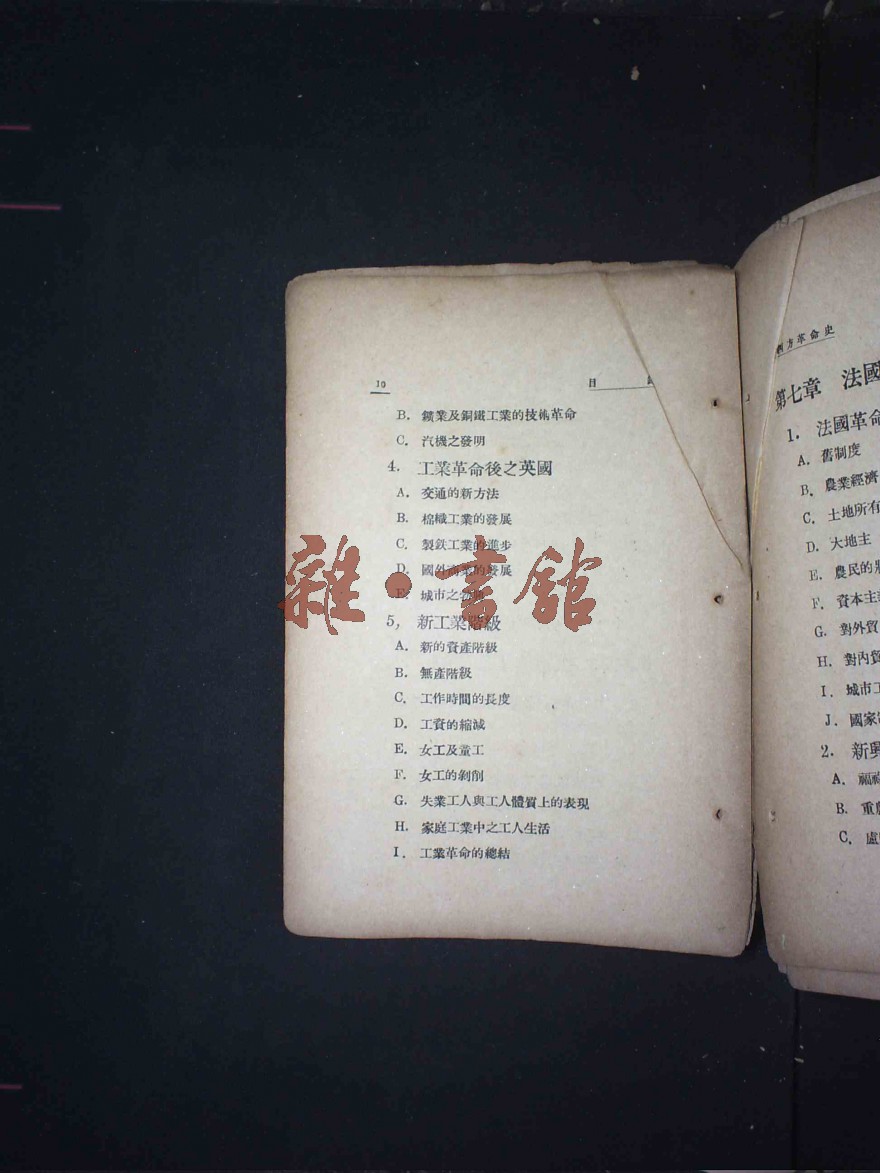 10
目
B. 鑛業及銅鐵工業的技術革命
C. 汽機之發明
4. 工業革命後之英國
A. 交通的新方法
B. 棉織工業的發展
C. 製鉄工業的進步
D. 國外商業的發展
E. 城市之
5, 新工業階級
A. 新的資產階級
B. 無產階級
C. 工作時間的長度
D. 工資的縮減
E. 女工及童工
F. 女工的剝削
G. 失業工人與工人體質上的表現
H. 家庭工業中之工人生活
I. 工業革命的總結
雜·書館
西方革命史
第七章 法國
1. 法國革命
A. 舊制度
B. 農業經濟
C. 土地所有
D. 大地主
E. 農民的
F. 資本主
G. 對外貿
H. 對內貿
I. 城市
J. 國家
2. 新興
A. 福
B. 重農
C. 盧